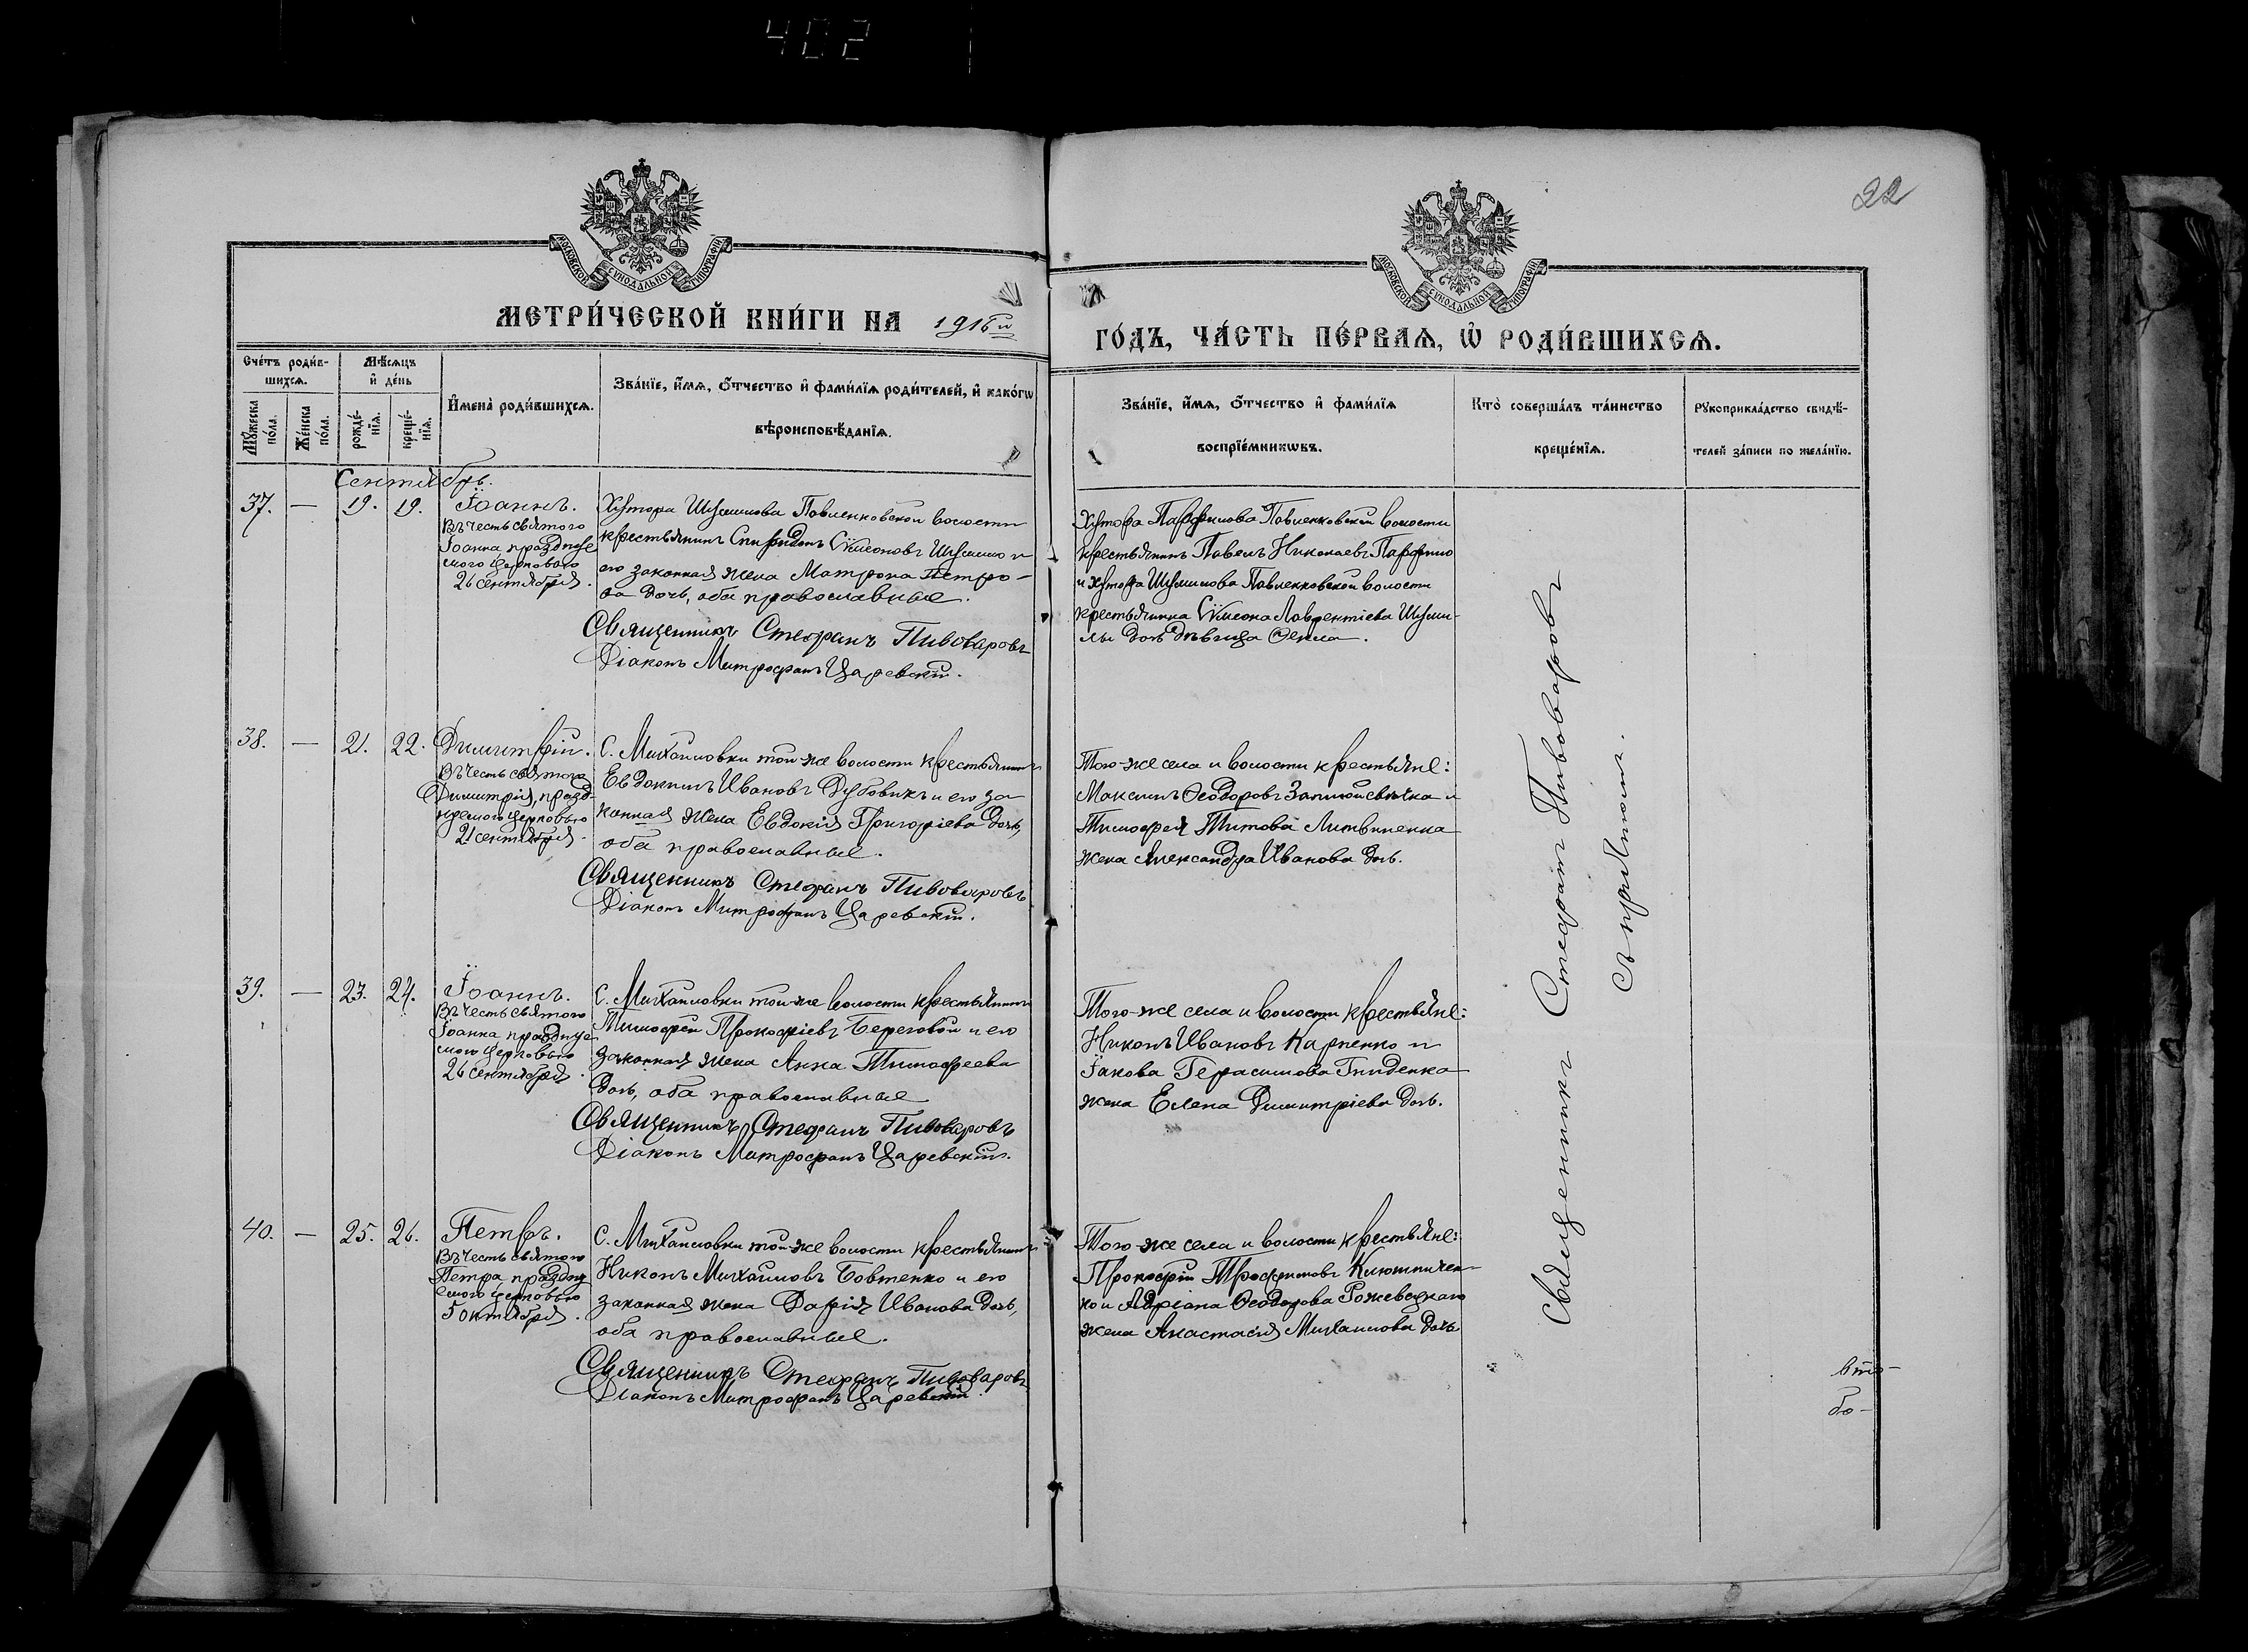 402
22
МОСКОВСКОЙ СѴНОДАЛЬНОЙ ТИПОГРАФІИ
МОСКОВСКОЙ СѴНОДАЛЬНОЙ ТИПОГРАФІИ
МЕТРИ́ЧЕСКОЙ КНИ́ГИ НА 1916й
ГО́ДЪ, ЧА́СТЬ ПЕ́РВАѦ, Ѡ҆ РОДИ́ВШИХСѦ.
Сче́тъ роди́в-
шихсѧ.
Мѣ́сѧцъ
и҆ де́нь
Мꙋ́жеска
по́ла.
Же́нска
по́ла.
рожде́-
нїѧ.
креще́-
нїѧ.
И҆мена̀ роди́вшихсѧ.
Зва́нїе, и҆́мѧ, ѻ҆́тчество и҆ фами́лїѧ роди́телей, и҆ како́гѡ
вѣроисповѣ́данїѧ.
Зва́нїе, и҆́мѧ, ѻ҆́тчество и҆ фами́лїѧ
воспрїе́мникѡвъ.
Кто̀ соверша́лъ та́инство
креще́нїѧ.
Рꙋкоприкла́дство свидѣ́-
телей за́писи по жела́нїю.
Сентябрь.
37. — 19. 19.
Іоаннъ.
Въ честь святого
Іоанна празднуе
мого церковью
26 сентября.
Хутора Шумилова Павленковской волости
крестьянинъ Спиридонъ Сѵмеоновъ Шумило и
его законная жена Матрона Петро-
ва дочь, оба православные.
Священникъ Стефанъ Пивоваровъ
Діаконъ Митрофанъ Царевскій.
Хутора Парфилова Павленковской волости
крестьянинъ Павелъ Николаевъ Парфило
и хутора Шумилова Павленковской волости
крестьянина Сѵмеона Лаврентіева Шуми-
лы дочь дѣвица Ѳекла.
38. — 21. 22.
Димитрій.
Въ честь святого
Димитрія, празд-
нуемого церковью
21 сентября.
С. Михайловки той-же волости крестьянинъ
Евдокимъ Ивановъ Дубовикъ и его за
конная жена Евдокія Григоріева дочь,
оба православные.
Священникъ Стефанъ Пивоваровъ
Діаконъ Митрофанъ Царевскій.
Того-же села и волости крестьяне:
Максимъ Ѳеодоровъ и
Тимофея Титова Литвиненка
жена Александра Иванова дочь.
39. — 23. 24.
Іоаннъ.
Въ честь святого
Іоанна празднуе
мого церковью
26 сентября.
С. Михайловки той-же волости крестьянинъ
Тимофей Прокофіевъ Береговой и его
законная жена Анна Тимофеева
дочь, оба православные
Священникъ Стефанъ Пивоваровъ
Діаконъ Митрофанъ Царевскій.
Того-же села и волости крестьяне:
Никонъ Ивановъ Карпенко и
Іакова Герасимова Гниденка
жена Елена Димитріева дочь.
40. — 25. 26.
Петръ.
Въ честь святого
Петра праздну
емого церковью
5 октября.
С. Михайловки той-же волости крестьянинъ
Никонъ Михайловъ Бовтенко и его
законная жена Дарія Иванова дочь,
оба православные.
Священникъ Стефанъ Пивоваровъ
Діаконъ Митрофанъ Царевскій.
Того-же села и волости крестьяне:
Прокофій Трофимовъ Ключничен-
ко и Адріана Ѳеодорова
жена Анастасія Михайлова дочь
Священникъ Стефанъ Пивоваровъ
съ причтомъ.